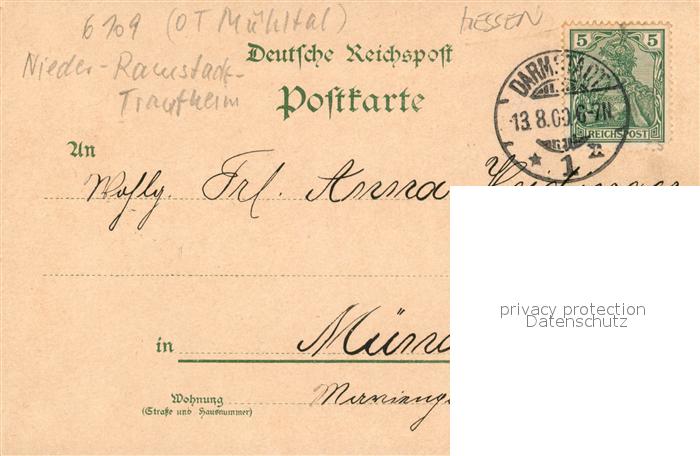 6109 (OT Mühltal)
HESSEN
Nieder-Ramstadt-
Trautheim
Deutsche Reichspost
Postkarte
5 5
REICHSPOST
DARMSTADT
13.8.00.6-7N.
* 1 *
An
Wohlg. Frl. Anna
privacy protection
Datenschutz
in
Wohnung
(Straße und Hausnummer)